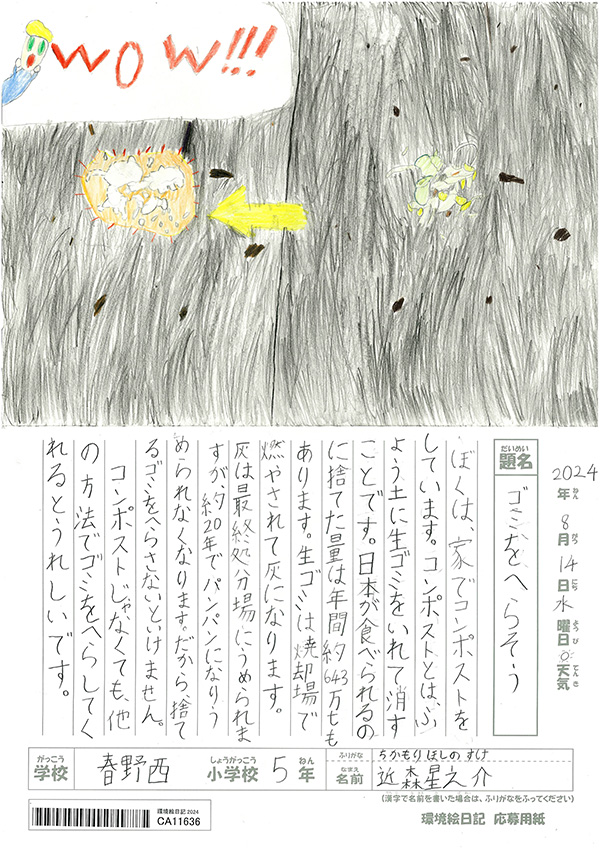 WOW!!!
2024年ねん8月がつ14日にち水曜日ようび天気てんき
だいめい
題名
ゴミをへらそう
ぼくは、家でコンポストを
しています。コンポストとは、ぶ
よう土に生ゴミをいれて消す
ことです。日本が食べられるの
に捨てた量は年間約643万tも
あります。生ゴミは焼却場で
燃やされて灰になります。
灰は最終処分場にうめられま
すが約20年でパンパンになりう
められなくなります。だから、捨て
るゴミをへらさないといけません。
コンポストじゃなくても、他
の方法でゴミをへらしてく
れるとうれしいです。
がっこう しょうがっこう ねん
学校 春野西 小学校 5年
ふりがな ちかもりほしのすけ
なまえ
名前 近森星之介
(漢字で名前を書いた場合は、ふりがなをふってください)
環境絵日記2024
CA11636
環境絵日記 応募用紙